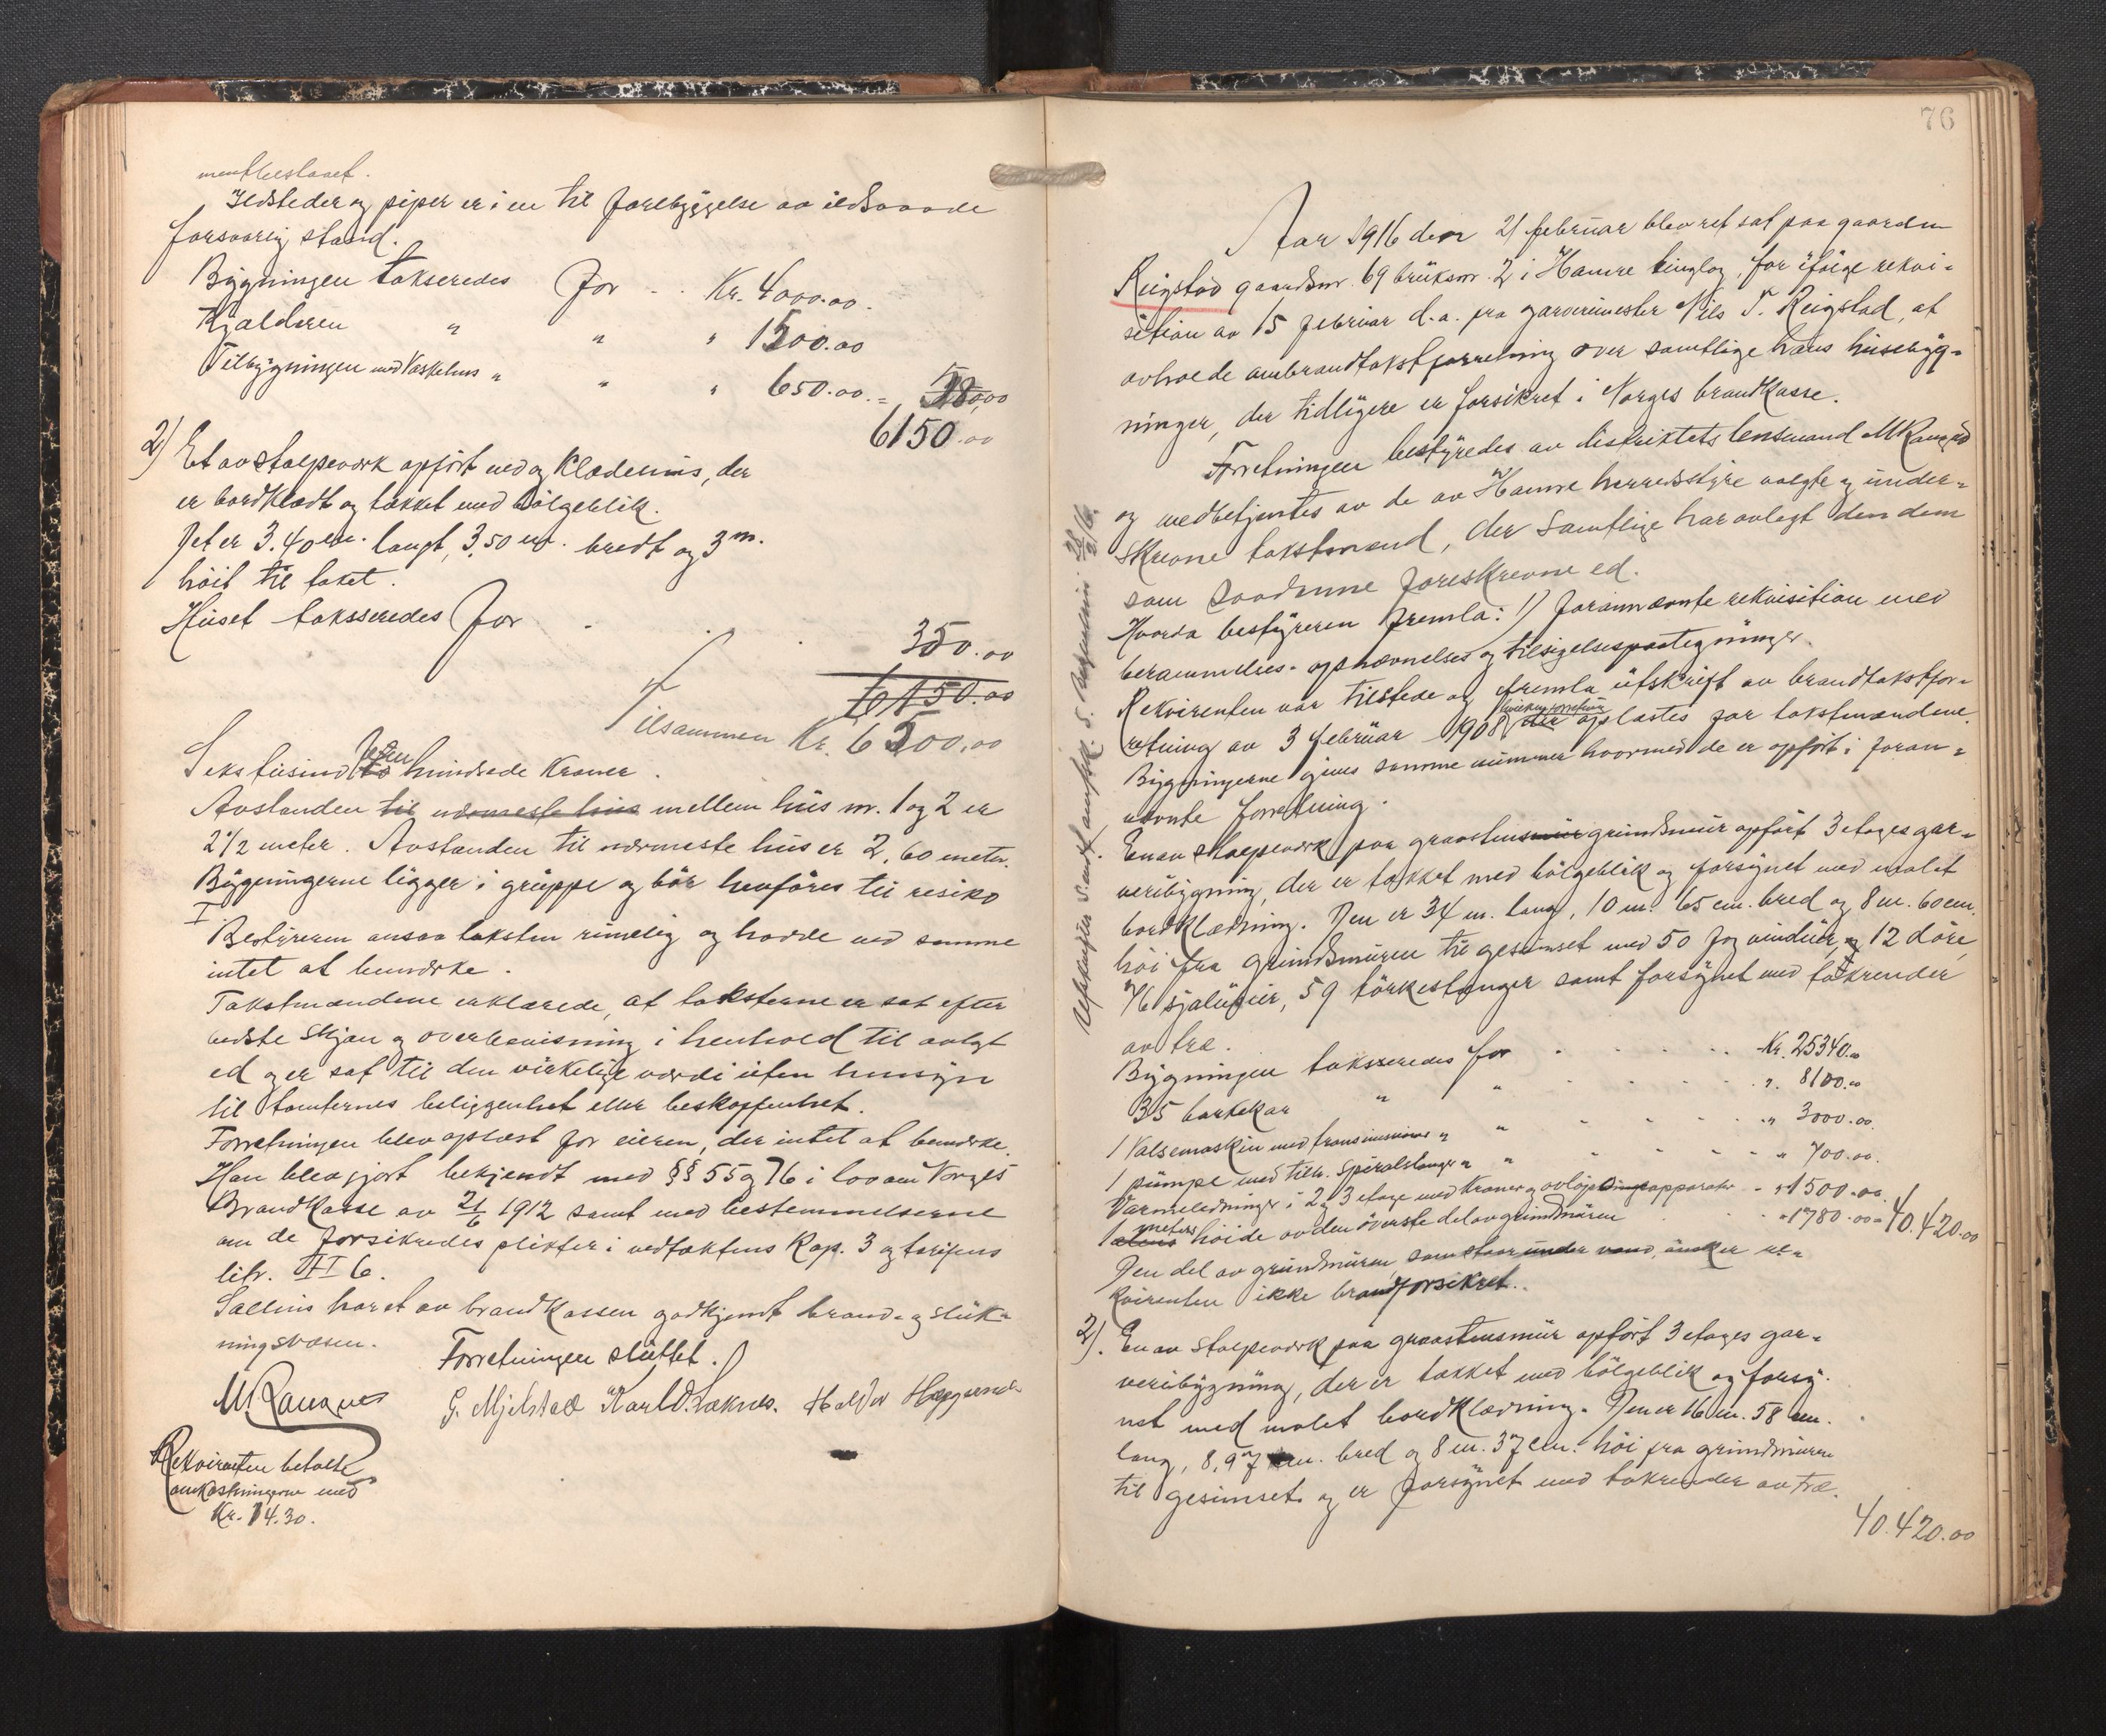 mentbestaaet.
Ildsteder og piper er i en til forebyggelse av ildsvaade
forsvarlig stand.
Bygningen takseredes for - . Kr. 4000.00.
Kjælderen " " " 1500.00
Tilbygningen med Vaskehus " " " 650.00. =
6150.00
2) Et av stolpeverk opført ved og klædehus, der
er bordklædt og tækket med bølgeblik.
Det er 3.40 m. langt, 3,50 m. bredt og 3 m.
høit til taket.
Huset taksseredes for . . . 350.00
6150.00
Tilsammen Kr. 6500,00
Sekstusind to fem hundrede kroner.
Avstanden til nærmeste hus mellem hus nr. 1 og 2 er
2 1/2 meter. Avstanden til nærmeste hus er 2,60 meter.
Bygningerne ligger i gruppe og bør henføres til risiko
I
Bestyreren ansaa taksten rimelig og havde ved samme
intet at bemærke.
Takstmændene erklærede, at taksterne er sat efter
bedste skjøn og overbevisning i henhold til avlagt
ed og er sat til den virkelige værdi uten hensyn
til tomternes beliggenhet eller beskaffenhet.
Forretningen blev oplæst for eieren, der intet at bemærke.
Han blev gjort bekjendt med §§ 55 og 76 i lov om Norges
Brandkasse av 21/6 1912 samt med bestemmelserne
om de forsikredes plikter i vedtektens Kap. 3 og tarifens
litr. II 6.
har et av brandkassen godkjent brand- og sluk-
ningsvæsen.
Forretningen sluttet.
G. Mjelstad Karl O. Halder
Rekvirenten betalte
omkostningerne med
Kr. 14.30.
76
Aar 1916 den 21 februar blev ret sat paa gaarden
Reigstad gaardsnr. 69 bruksnr. 2 i Hamre tinglag, for ifølge rekvi-
sition av 15 februar d.a. fra garverimester Nils T. Reigstad, at
avholde ombrandtakstforretning over samtlige hans husebyg-
ninger, der tidligere er forsikret i Norges brandkasse.
Forretningen bestyredes av distriktets lensmand M Rangnes
og medbetjentes av de av Hamre herredsstyre valgte og under-
skrevne takstmænd, der samtlige har avlagt den dem
som saadanne foreskrevne ed.
Hvorda bestyreren fremla: 1) forannævnte rekvisition med
berammelses- opnævnelses og tilsigelsespaategninger.
Rekvirenten var tilstede og fremla utskrift av brandtakstfor-
retning av 3 februar 1908, hvilken forretning der oplæstes for takstmændene.
Bygningerne gives samme nummer hvormed de er opført i foran-
nævnte forretning.
En av stolpeverk paa graastensmur grundmur opført 3 etages gar-
veribygning, der er tækket med bølgeblik og forsynet med malet
bordklædning. Den er 34 m. lang, 10 m. 65 cm. bred og 8 m. 60 cm.
høi fra grundmuren til gesimset med 50 fag vinduer, og 12 døre,
og 76 sjalusier, 59 tørkestanger samt forsynet med takrender
av træ.
Bygningen taksseredes for . . . . Kr. 25340.00
35 barkekar " " . . . " 8100.00
1 Valsemaskin med transmissioner " " - - - " 3000.00.
1 pumpe med tilh. spiralslanger " " - - - " 700.00.
Varmeledninger i 2 og 3 etage med kraner og avløpsapparater - " 1500.00.
1 alens meters høide av den øverste del av grundmuren . . " 1780.00 = 40.420.00
Den del av grundmuren, som staar under vand, ønsker re-
kvirenten ikke brandforsikret.
2). En av stolpeverk paa graastensmur opført 3 etages gar-
veribygning, der er tækket med bølgeblik og forsy-
net med malet bordklædning. Den er 16 m. 58 cm.
lang, 8,97 m. bred og 8 m. 37 cm. høi fra grundmuren
til gesimset og er forsynet med takrender av træ.
40.420.00